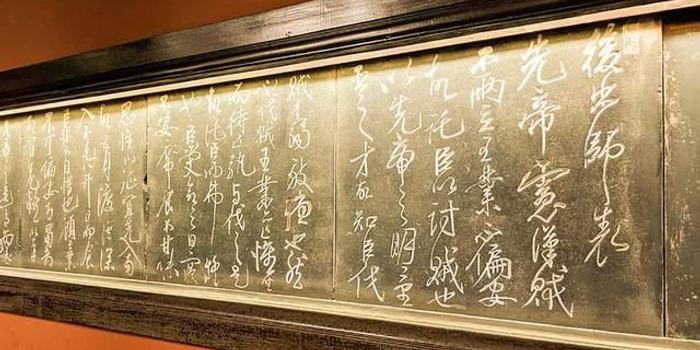 後出師表
先帝慮漢賊
不兩立王業不偏安
故託臣以討賊也
以先帝之明量
臣之才故知臣伐
賊才弱敵強也然
不伐賊王業亦亡惟坐
而待亡孰與伐之是
故託臣而弗疑
也臣受命之日寢
不安席食不甘味
思惟北征宜先入南
故五月渡瀘深
入不毛并日而食
臣非不自惜也顧王業